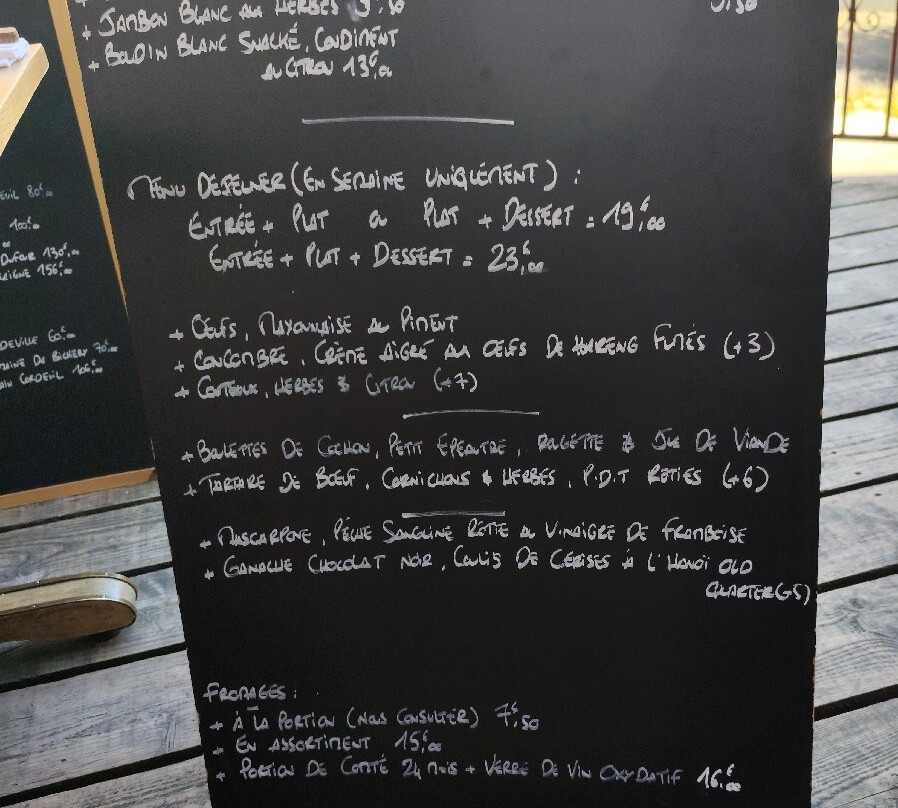 + JAMBON BLANC AUX HERBES 9€,50
+ BOUDIN BLANC SNACKÉ, CONDIMENT
AU CITRON 13€,00
MENU DEJEUNER (EN SEMAINE UNIQUEMENT) :
ENTRÉE + PLAT OU PLAT + DESSERT = 19€,00
ENTRÉE + PLAT + DESSERT = 23€,00
+ OEUFS, MAYONNAISE AU PIMENT
+ CONCOMBRE, CRÈME AIGRE AUX OEUFS DE HARENG FUMÉS (+3)
+ COUTEAUX, HERBES & CITRON (+7)
+ BOULETTES DE COCHON, PETIT EPEAUTRE, ROQUETTE & JUS DE VIANDE
+ TARTARE DE BŒUF, CORNICHONS & HERBES, P.D.T ROTIES (+6)
+ MASCARPONE, PÊCHE SANGUINE ROTIE AU VINAIGRE DE FRAMBOISE
+ GANACHE CHOCOLAT NOIR, COULIS DE CERISES À L'HANOÏ OLD
QUARTER (+5)
FROMAGES :
+ À LA PORTION (NOUS CONSULTER) 7€,50
+ EN ASSORTIMENT 15€,00
+ PORTION DE COMTÉ 24 MOIS + VERRE DE VIN OXYDATIF 16€,00
80€,00
100€,00
130€,00
156€,00
60€,00
70€,00